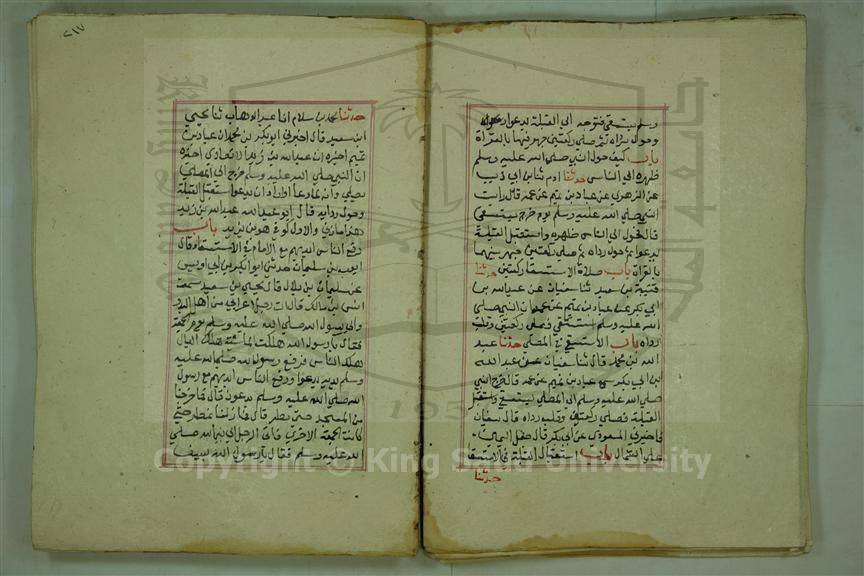 وسلم يستسقي فتوجه الي القبلة يدعوا وحول
وحول رداه ثم صلي ركعتين جهر فيها بالقرأة
باب كيف حول النبي صلي الله عليه وسلم
ظهره الي الناس حدثنا ادم ثنا بن ابي ذيب
عن الزهري عن عباد بن تميم عن عمه قال رايت
النبي صلي الله عليه وسلم يوم خرج يستسقي
قال فحول الي الناس ظهره واستقبل القبلة
يدعوا ثم حول رداه ثم صلي ركعتين جهر فيهما
بالقراة باب صلاة الاستسقا ركعتين حدثنا
قتيبة بن سعيد ثنا سفيان عن عبدالله بن
ابي بكر عن عباد بن تميم عن عمه ان النبي صلي
الله عليه وسلم استسقي فصلي ركعتين وقلب
رداه باب الاستسقي في المصلي حدثنا عبد
الله بن محمد قال ثنا سفيان عن عبد الله
ابن ابي بكر سمع عباد بن تميم عن عمه قال خرج النبي
صلي الله عليه وسلم الي المصلي يستسقي واستقبل
القبلة فصلي ركعتين وقلب رداه قال سفيان
فاخبرني المسعودي عن ابي بكر قال جعل اليمين
علي الشمال باب استقبال القبلة في الاستسقا
حدثنا
٢١٧
حدثنا محمد بن سلام انا عبد الوهاب ثنا يحيي
ابن سعيد قال اخبرني ابو بكر بن محمد ان عباد بن
تميم اخبره ان عبد الله بن زيد الانصاري اخبره
ان النبي صلي الله عليه وسلم خرج الي المصلي
يصلي وانه لما دعا او اراد ان يدعوا استقبل القبلة
وحول رداه قال ابو عبد الله عبد الله بن زيد
هذا مازني والاول كوفي هو بن يزيد باب
رفع الناس ايديهم مع الامام في الاستسقا وقال
ايوب بن سليمان حدثني ابو بكر بن ابي اويس
عن سليمان بن بلال قال يحيي بن سعيد سمعت
انس بن مالك قال اتي رجل اعرابي من اهل البدو
الي رسول الله صلي الله عليه وسلم يوم الجمعة
فقال يا رسول الله هلكت الماشية هلك العيال
هلك الناس فرفع رسول الله صلي الله عليه
وسلم يديه يدعوا ورفع الناس ايديهم مع رسول
الله صلي الله عليه وسلم يدعون قال فما خرجنا
من المسجد حتي مطرنا قال فما زلنا نمطر حتي
كانت الجمعة الاخري فاتي الرجل الي نبي الله صلي
الله عليه وسلم فقال يا رسول الله بسق
Copyright © King Saud University
195